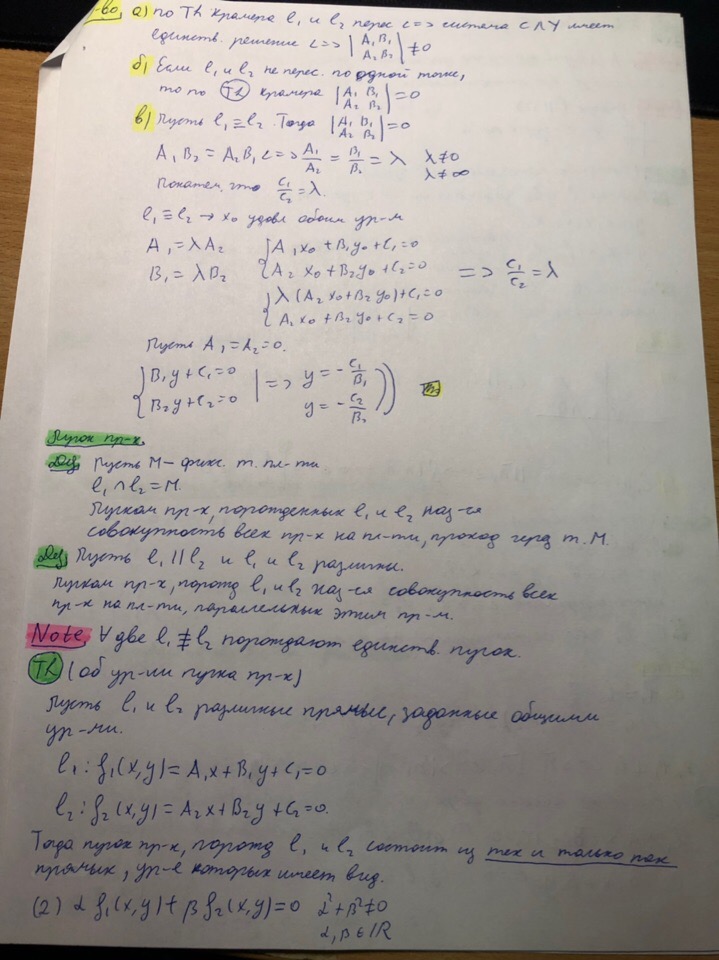 -во а) по Th Крамера l₁ и l₂ перес <=> система СЛУ имеет
единств. решение <=> |A₁ B₁; A₂ B₂| ≠ 0
б) Если l₁ и l₂ не перес. по одной точке,
то по Th Крамера |A₁ B₁; A₂ B₂| = 0
в) Пусть l₁ ≡ l₂. Тогда |A₁ B₁; A₂ B₂| = 0
A₁B₂ = A₂B₁ <=> A₁/A₂ = B₁/B₂ = λ λ≠0
λ≠∞
Покажем, что C₁/C₂ = λ.
l₁ ≡ l₂ → x₀ удовл обоим ур-м
A₁ = λA₂ { A₁x₀ + B₁y₀ + C₁ = 0
B₁ = λB₂ A₂x₀ + B₂y₀ + C₂ = 0 => C₁/C₂ = λ
{ λ(A₂x₀ + B₂y₀) + C₁ = 0
A₂x₀ + B₂y₀ + C₂ = 0
Пусть A₁ = A₂ = 0.
{ B₁y + C₁ = 0 | => y = - C₁/B₁
B₂y + C₂ = 0 y = - C₂/B₂ ))
Пучок пр-х
Def Пусть M – фикс. т. пл-ти
l₁ ∩ l₂ = M.
Пучком пр-х, порожденных l₁ и l₂ наз-ся
совокупность всех пр-х на пл-ти, проход через т. M.
Def Пусть l₁ || l₂ и l₁ и l₂ различны.
Пучком пр-х, порожд l₁ и l₂ наз-ся совокупность всех
пр-х на пл-ти, параллельных этим пр-м.
Note ∀ две l₁ ≢ l₂ порождают единств. пучок.
Th (об ур-ии пучка пр-х)
Пусть l₁ и l₂ различные прямые, заданные общими
ур-ми.
l₁: f₁(x,y) = A₁x + B₁y + C₁ = 0
l₂: f₂(x,y) = A₂x + B₂y + C₂ = 0.
Тогда пучок пр-х, порожд l₁ и l₂ состоит из тех и только
прямых, ур-е которых имеет вид.
(2) α f₁(x,y) + β f₂(x,y) = 0 α² + β² ≠ 0
α, β ∈ ℝ